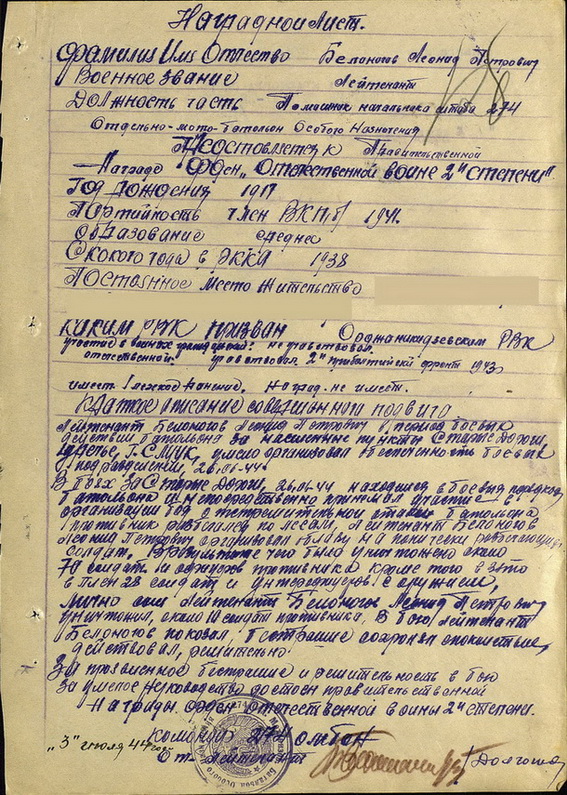 Наградной Лист.
Фамилия Имя Отчество Белоногов Леонид Петрович
Военное звание Лейтенант
Должность часть Помошник начальника штаба 274
Отдельно-мото-батольон Особого Назначения
к Правительственной
Награде Орден „Отечественной воине 2й степени"
Год рождения 1917
Партийность член ВКП/б/ 1941.
Образование среднее
С кокого года в РККА 1938
Постоянное место жительство
Каким РВК призван Орджаникидзевским РВК
участие в войнах гражданской: не участвовал.
отечественной. участвовал 2й прибалтийский фронт 1943
имеет 1 легкое ранение. Наград. не имеет.
Краткое описание совершонного подвига
Лейтенант Белоногов Леонид Петрович в период боевых
действий батольона за населенные пункты Старые Дороги,
г. Слуцк, умело организовал боевых
подразделений, 26.06.44г.
В боях за Старые Дороги, 26.06.44 находился в боевых порядках
батольона и непосредственно принимал участие в
организации боя. стремительной атаки батольона
противник разбежался по лесам, Лейтенант Белоногов
Леонид Петрович организовал облаву на панически
солдат. В результате чего было уничтожено около
70 солдат и офицеров противника кроме того взято
в плен 28 солдат и унтерофицеров с оружием,
Лично сам Лейтенант Белоногов Леонид Петрович
уничтожил, около 10 солдат противника. В бою Лейтенант
Белоногов показал, бестрашие сохроняя спокойствие,
действовал, решительно.
За проявленное бестрашие и решительность в бою
за умелое руководство достоен правительственной
Награды орден отечественной воины 2й степени.
Командир 274 омбон
„3" июля 44 года Ст. Лейтенант /Долгошея/